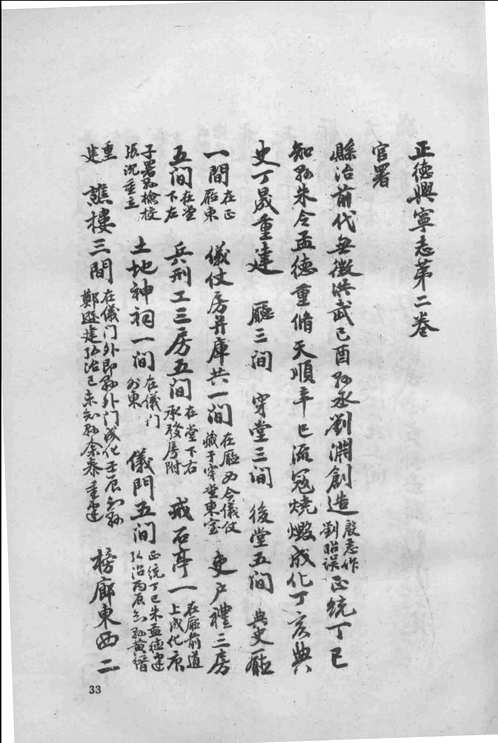 正德興寧志第二卷
官署
縣治前代無徵洪武己酉知縣丞劉淵創造殷志作劉昭誤正統丁巳
知縣朱令孟德重脩天順辛巳流寇燒燬成化丁亥典
史丁晟重建 廳三间 穿堂三间 後堂五间 典史廳
一間在正廳東 儀仗房并庫共一间在廳西今儀仗藏于穿堂東室 吏戶禮三房
五间在堂下左 兵刑工三房五间在堂下右承發房附 戒石亭一在廳前道上成化庚
子署縣檢校張沉重立 土地神祠一间在儀门外東 儀門五间正統丁巳朱孟德建弘治丙辰知縣黄
重建 譙樓三間在儀门外即縣外门成化壬辰知縣鄭 建弘治己未知縣余泰重建 榜廊東西二
33